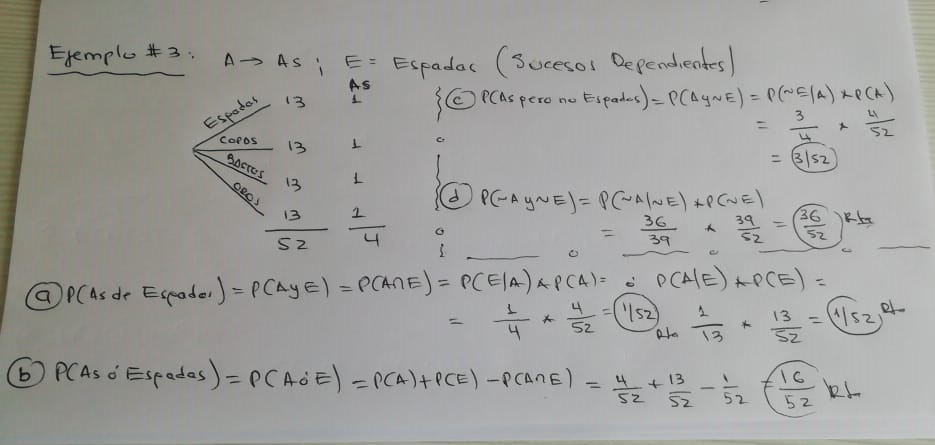 Ejemplo #3: A → As ; E = Espadas (Sucesos Dependientes)
As
Espadas 13 1
Copas 13 1
Bastos 13 1
Oros 13 1
52 4
(c) P(As pero no Espadas) = P(A y ~E) = P(~E/A) * P(A)
= 3/4 * 4/52
= 3/52
(d) P(~A y ~E) = P(~A/~E) * P(~E)
= 36/39 * 39/52 = 36/52 Rta
(a) P(As de Espadas) = P(A y E) = P(A∩E) = P(E/A) * P(A) = ó P(A/E) * P(E) =
= 1/4 * 4/52 = 1/52 Rta 1/13 * 13/52 = 1/52 Rta
(b) P(As ó Espadas) = P(A ó E) = P(A) + P(E) - P(A∩E) = 4/52 + 13/52 - 1/52 = 16/52 Rta